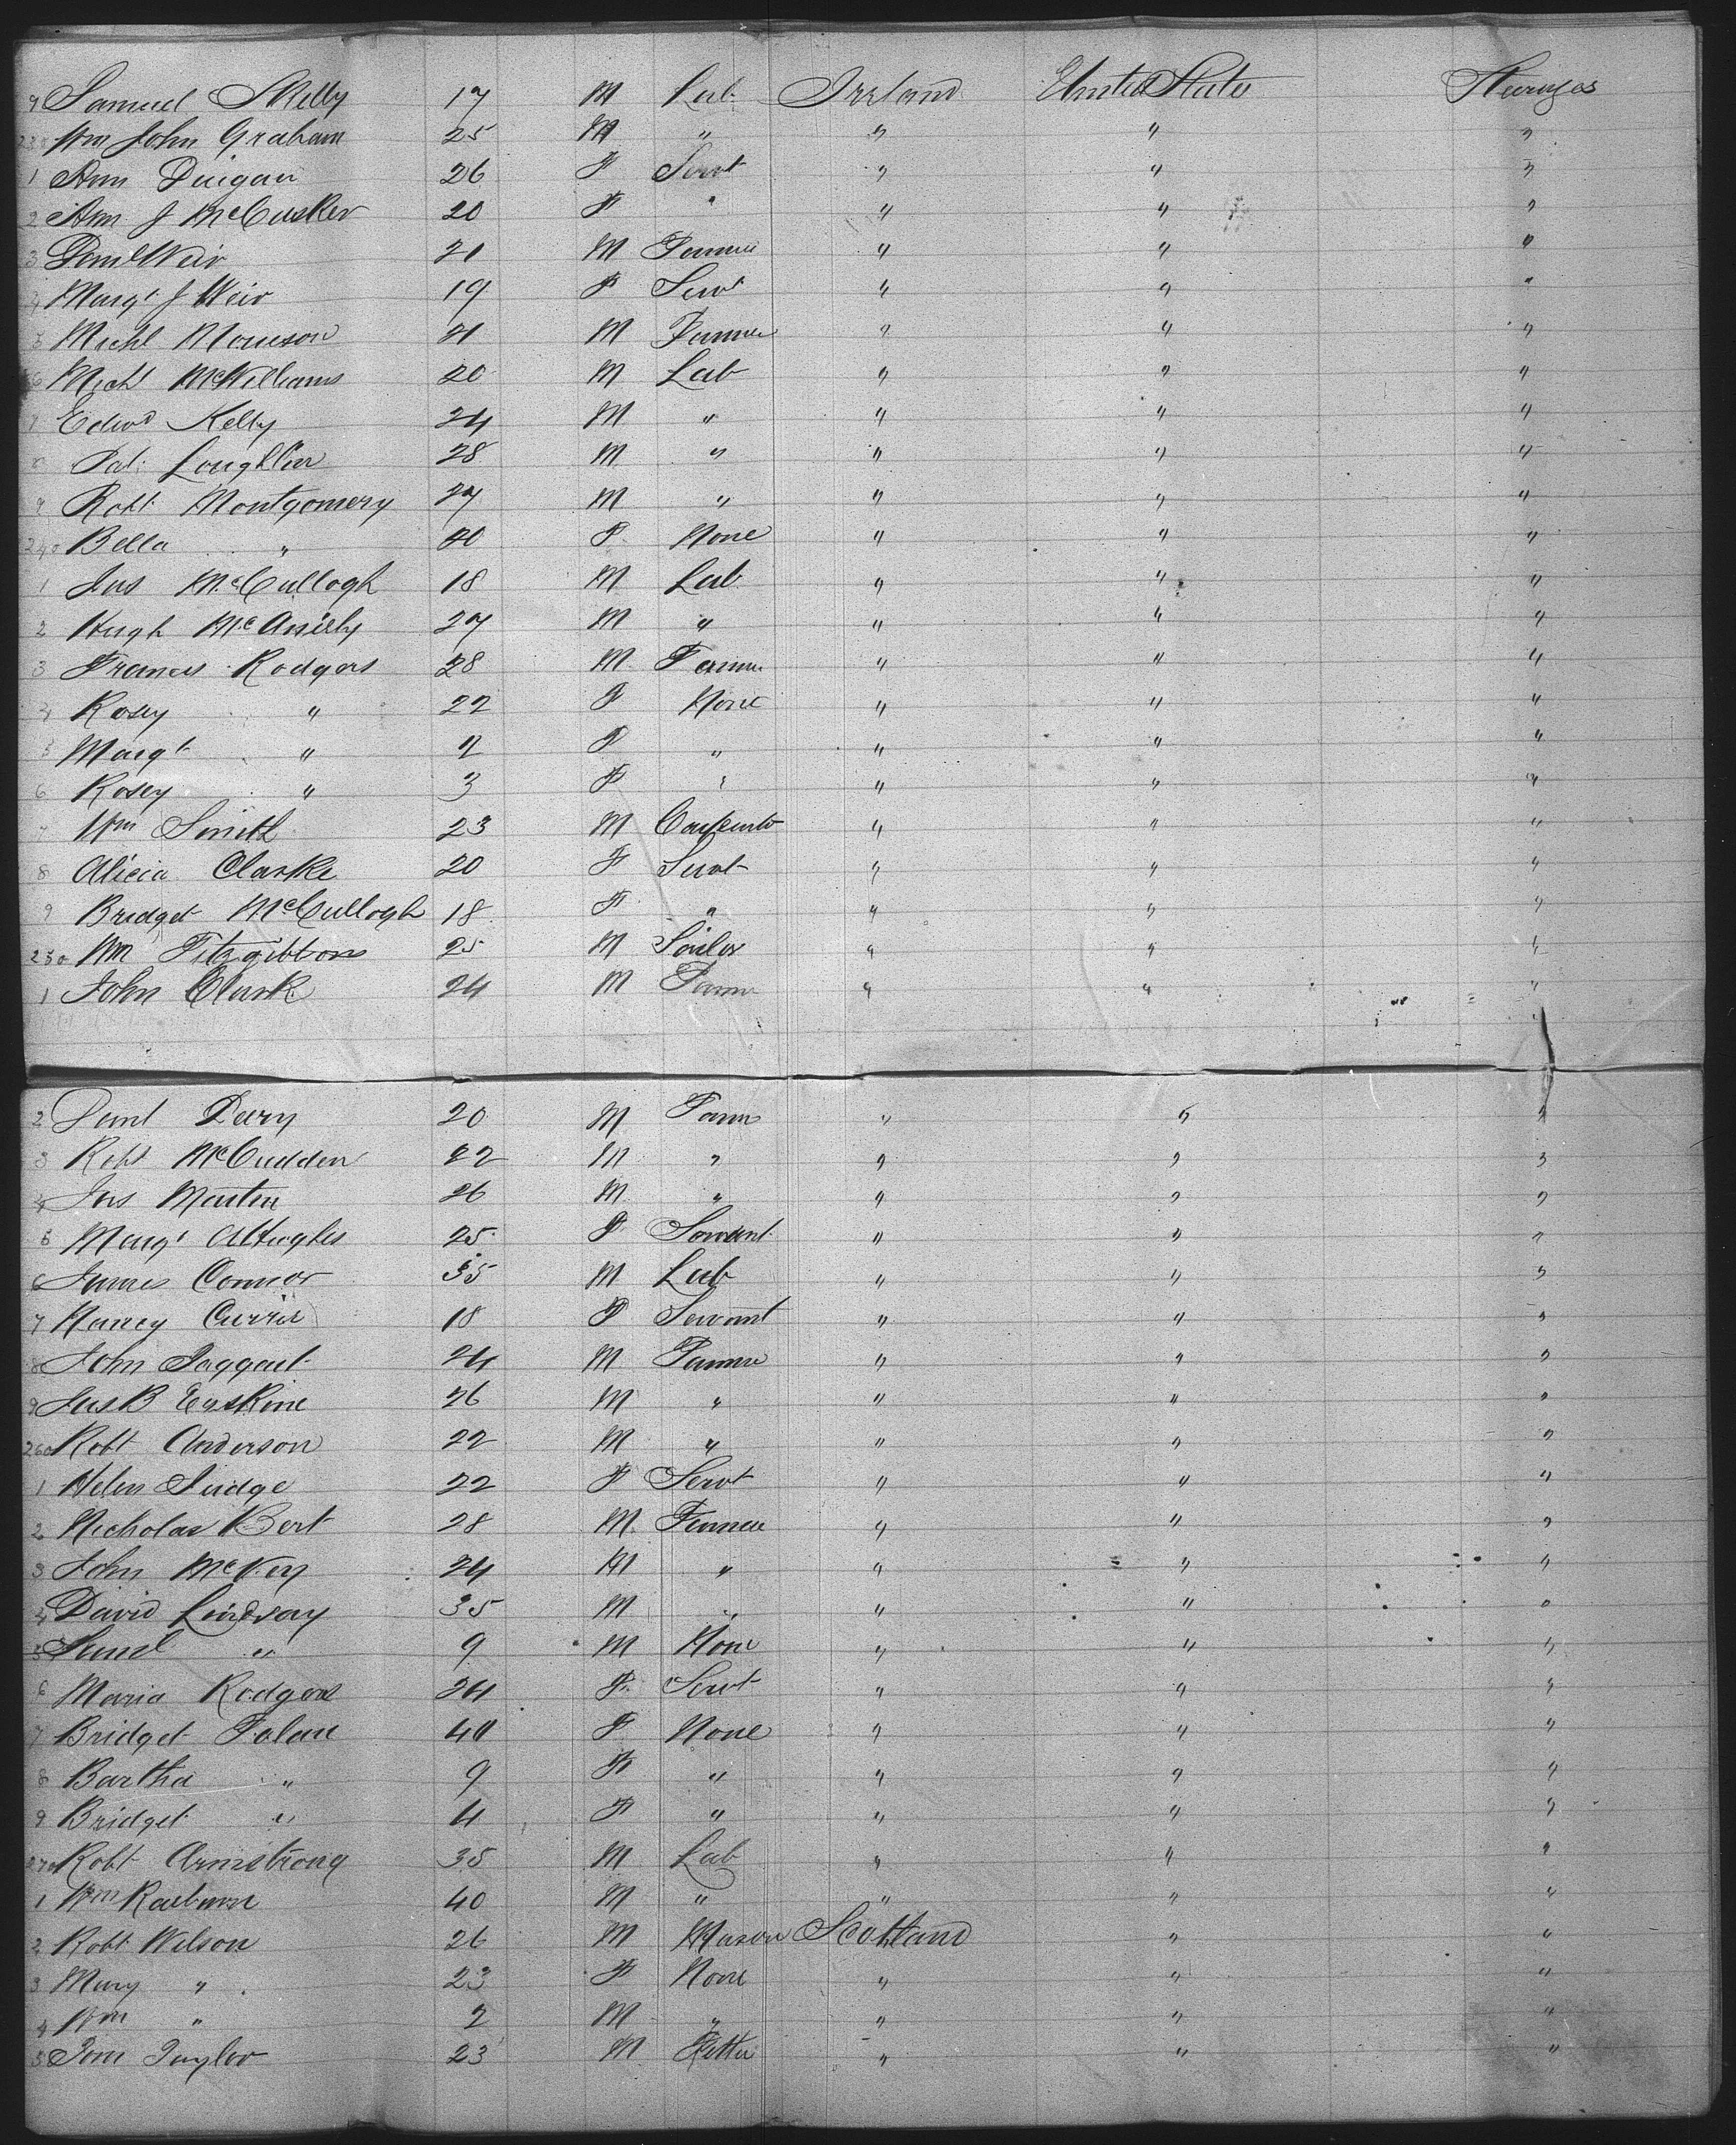 9 Samuel Skelly 17 M Lab Ireland United State Steerages
230 Wm John Graham 25 M " " " "
1 Ann Duigan 26 F Servt " " "
2 Ann J McCusker 20 F " " " "
3 Saml Weir 21 M Farmer " " "
4 Margt J Weir 19 F Servt " " "
5 Michl 21 M Farmer " " "
6 Michl McWilliams 20 M Lab " " "
7 Edwd Kelly 24 M " " " "
8 Pat Loughlin 28 M " " " "
9 Robt Montgomery 27 M " " " "
240 Bella " 20 F None " " "
1 Jas McCullogh 18 M Lab " " "
2 Hugh 27 M " " " "
3 Francis Rodgers 28 M Farmer " " "
4 Rosey " 22 F None " " "
5 Margt " F " " " "
6 Rosey " 3 F " " " "
7 Wm Smith 23 M Carpenter " " "
8 Alicia Clarke 20 F Servt " " "
9 Bridget McCullogh 18 F " " " "
250 Wm Fitzgibbons 25 M Sailor " " "
1 John Clark 24 M Farmer " " "
2 Saml Deery 20 M Farm " " "
3 Robt McCudden 22 M " " " "
4 Jas Martin 26 M " " " "
5 Margt 25 F Servant " " "
6 James Connor 35 M Lab " " "
7 Nancy Currie 18 F Servant " " "
8 John Taggart 24 M Farmer " " "
9 Jas B Erskine 26 M " " " "
260 Robt Anderson 22 M " " " "
1 Helen Judge 22 F Servt " " "
2 Nicholas Bert 28 M Farmer " " "
3 John McKey 24 M " " " "
4 David Lindsay 35 M " " " "
5 Saml " 9 M None " " "
6 Maria Rodgers 24 F Servt " " "
7 Bridget Folan 40 F None " " "
8 Bartha " 9 F " " " "
9 Bridget " 4 F " " " "
270 Robt Armstrong 35 M Lab " " "
1 Wm 40 M " " " "
2 Robt Wilson 26 M Mason Scotland " "
3 Mary " 23 F None " " "
4 Wm " 2 M " " " "
5 Taylor 23 M " " "